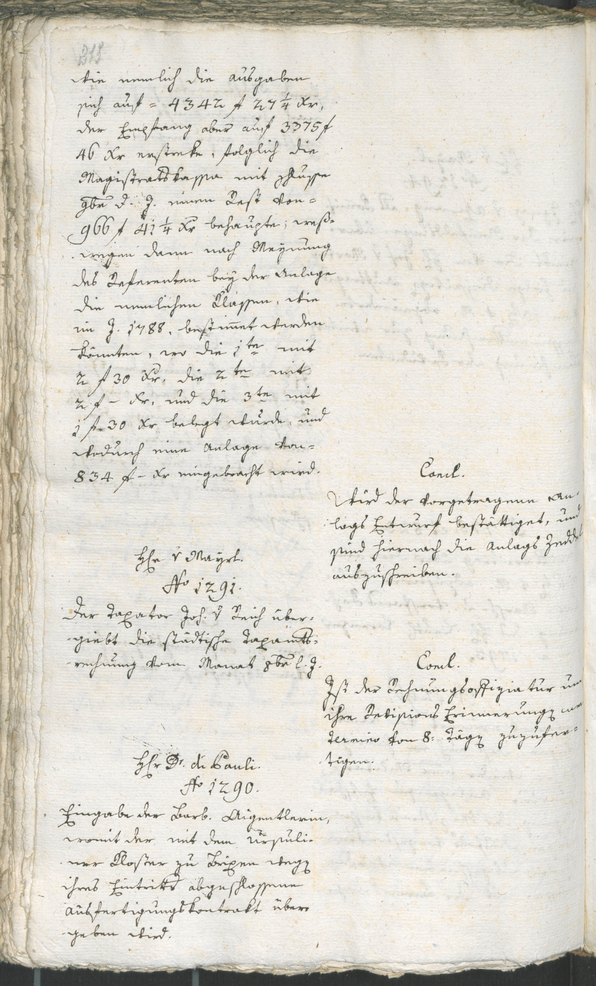 wie nemlich die Ausgaben
sich auf = 4342 f 27 1/4 Kr,
der Empfang aber auf 3375 f
46 Kr erstreke, folglich die
Magistratskassa mit
d. J. einen Rest von =
966 f 41 1/4 Kr behaupte; weß-
wegen dann nach Meynung
des Referenten bey der Anlage
die nemlichen Klassen, wie
im J. 1788. bestimmt werden
könnten, wo die 1te mit
2 f 30 Kr, die 2te mit
2 f – Kr, und die 3te mit
1 f 30 Kr belegt wurde, und
wodurch eine Anlage von =
834 f – Kr eingebracht wird.
Concl.
Wird der vorgetragene An-
lags Entwurf bestättiget, und
sind hiernach die Anlags
auszuschreiben.
Hhr v Mayrl.
No 1291.
Der Taxator Joh. v Reich über-
giebt die städtische Taxamts-
rechnung vom Monat 8ber l. J.
Concl.
Ist der Rechnungsoffiziatur um
ihre Revisions Erinnerung
Termino von 8: Tägen zuzufer-
tigen.
Hhr Dr. di Pauli.
No 1290.
Eingabe der Barb. Aigentlerin,
womit der mit dem Ursuli-
ner Kloster zu Brixen wegen
ihres Eintritts abgeschlossene
Ausfertigungskontrakt über-
geben wird.